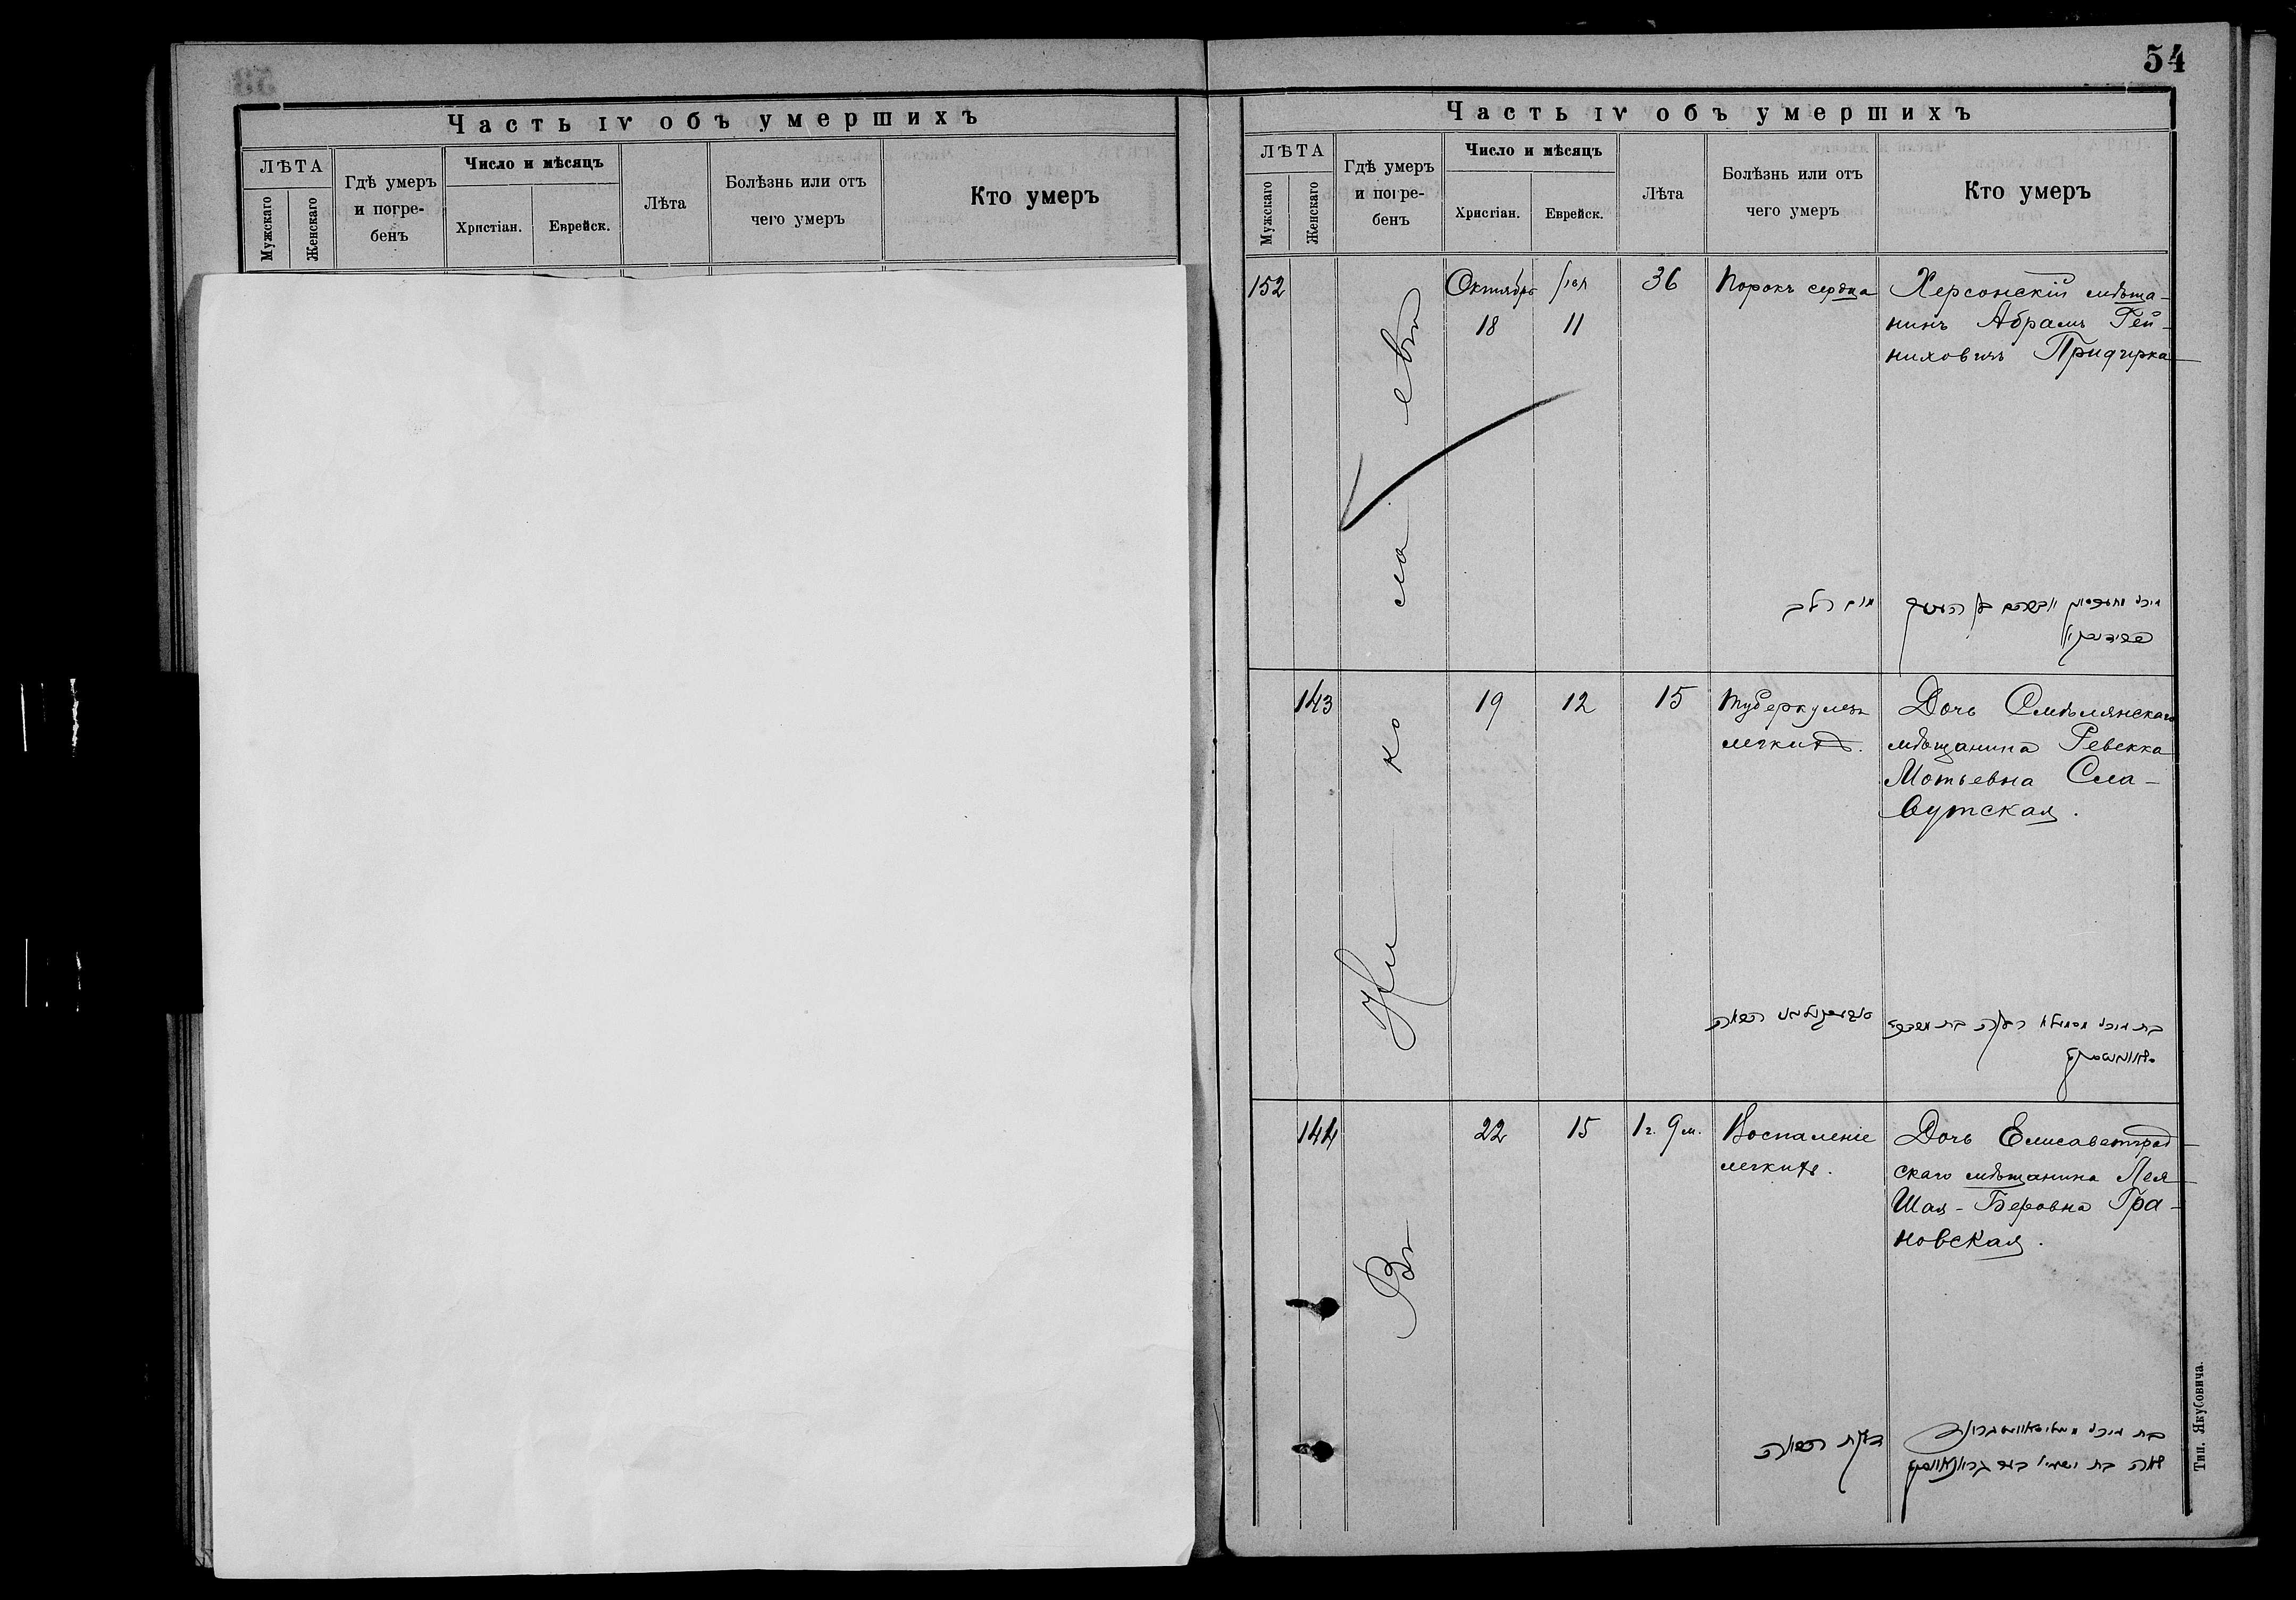 54
Часть IV объ умершихъ
ЛѢТА
Мужскаго
Женскаго
Гдѣ умеръ
и погре-
бенъ
Число и мѣсяцъ
Христіан.
Еврейск.
Лѣта
Болѣзнь или отъ
чего умеръ
Кто умеръ
Часть IV объ умершихъ
ЛѢТА
Мужскаго
Женскаго
Гдѣ умеръ
и погре-
бенъ
Число и мѣсяцъ
Христіан.
Еврейск.
Лѣта
Болѣзнь или отъ
чего умеръ
Кто умеръ
Въ Николаевѣ
152
Октябрь
18
11
36
Порокъ сердца
Херсонскій мѣща-
нинъ Абрамъ Гей-
ниховичъ Придирка
מום הלב
143
19
12
15
Туберкулезъ
легкихъ.
Дочь Смѣлянскаго
мѣщанина Ревекка
Мотьевна Сла-
вутская.
144
22
15
1 г. 9 м.
Воспаленіе
легкихъ.
Дочь Елисаветград-
скаго мѣщанина Лея
Шая-Беровна Гра-
новская.
דלקת הריאה
Тип. Якубовича.